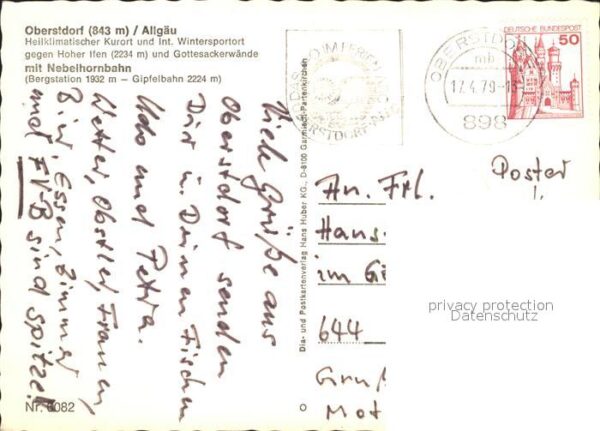 Oberstdorf (843 m) / Allgäu
Heilklimatischer Kurort und int. Wintersportort
gegen Hoher Ifen (2234 m) und Gottesackerwände
mit Nebelhornbahn
(Bergstation 1932 m – Gipfelbahn 2224 m)
Viele Grüße aus
Oberstdorf senden
Dir u. Deinen Fischen
Udo und Petra.
Wetter, Obstler, Frauen,
Bier, Essen, Zimmer
und FVB sind spitze!
Nr. 6082
Dia- und Postkartenverlag Hans Huber KG., D-8100 Garmisch-Partenkirchen
OBERSTDORF
mb
17.4.79-18
898
DEUTSCHE BUNDESPOST
50
Poster
An. Frl.
Hans-
im
644
privacy protection
Datenschutz